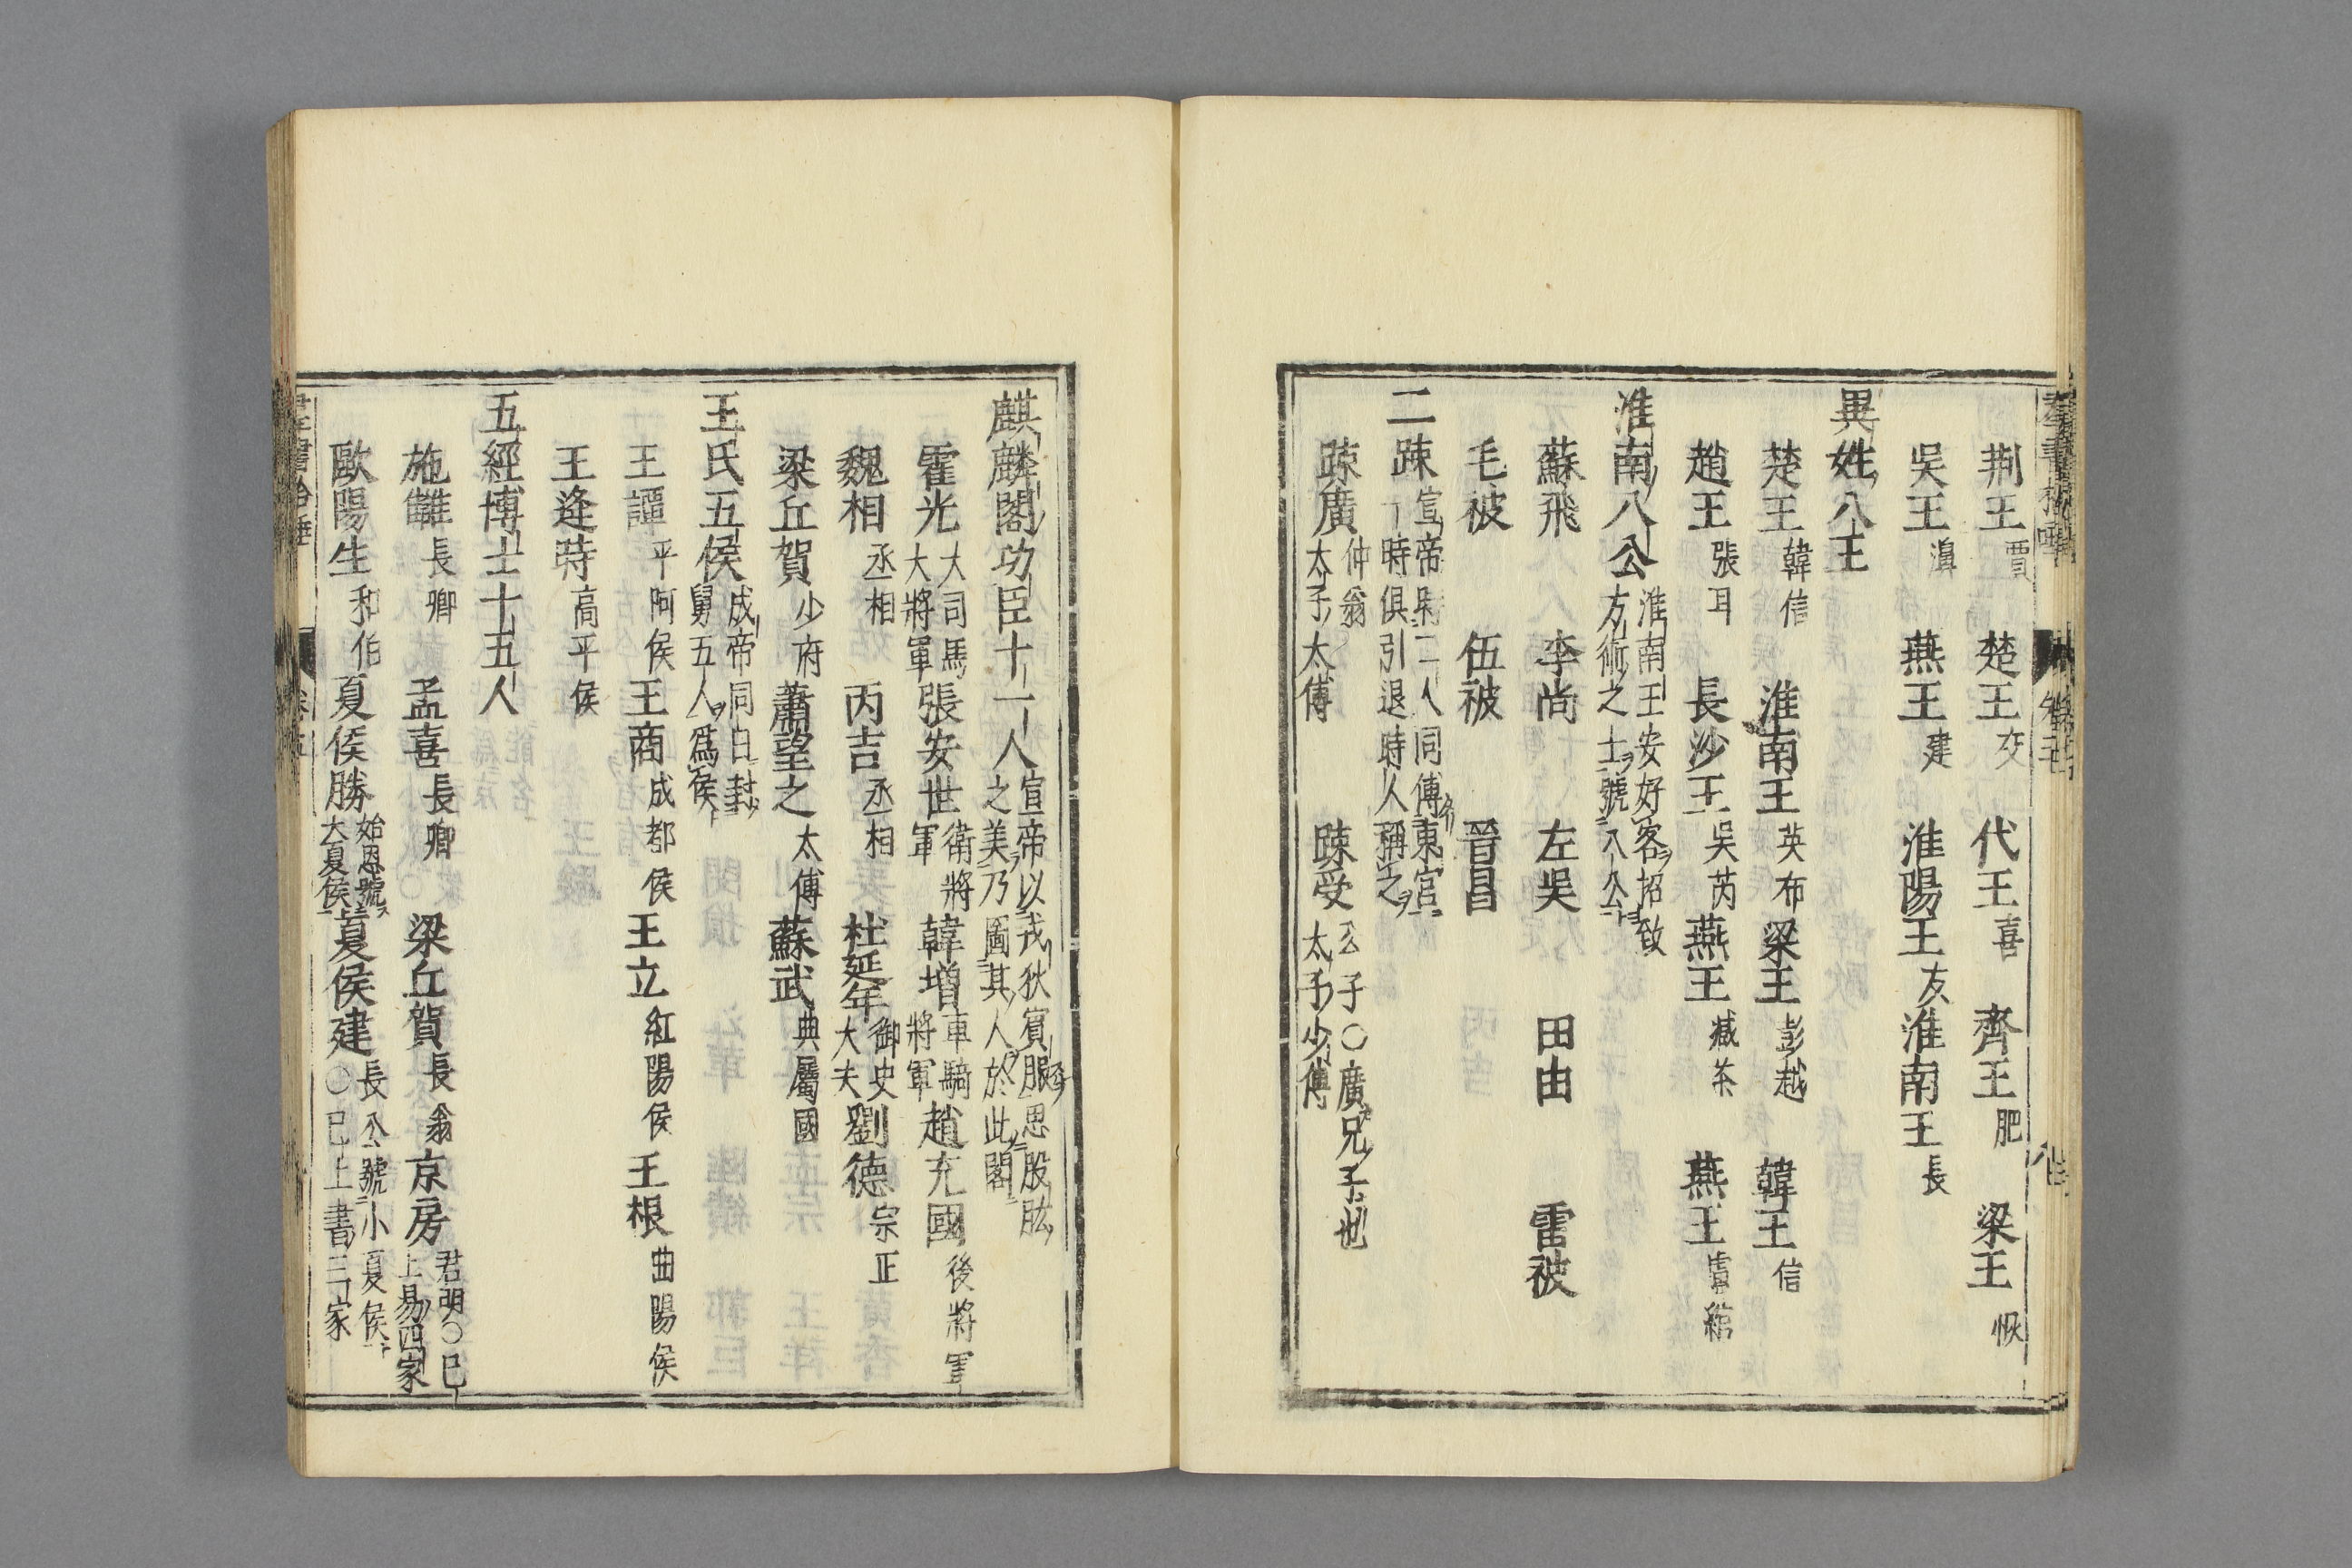 荆王賈　楚王交　代王喜　齊王肥　梁王恢
吳王濞　燕王建　淮陽王友　淮南王長
異姓八王
楚王韓信　淮南王英布　梁王彭越　韓王信
趙王張耳　長沙王吳芮　燕王臧荼　燕王盧綰
淮南八公淮南王安好客招致
方術之士號八公
蘇飛　李尚　左吳　田由　雷被
毛被　伍被　晉昌
二踈宣帝時二人同傅東宮
一時俱引退時人稱之
踈廣仲翁
太子太傅　踈受公子〇廣兄子也
太子少傅
麒麟閣功臣十一人宣帝以戎狄賓服思股肱
之美乃圖其人於此閣
霍光大司馬
大將軍　張安世衛將
軍　韓增車騎
將軍　趙充國後將軍
魏相丞相　丙吉丞相　杜延年御史
大夫　劉德宗正
梁丘賀少府　蕭望之太傅　蘇武典屬國
王氏五侯成帝同日封
舅五人爲侯
王譚平阿侯　王商成都侯　王立紅陽侯　王根曲陽侯
王逢時高平侯
五經博士十五人
施讎長卿　孟喜長卿　梁丘賀長翁　京房君明〇已
上易四家
歐陽生和伯　夏侯勝始恩號
大夏侯　夏侯建長公號小夏侯
〇已上書三家